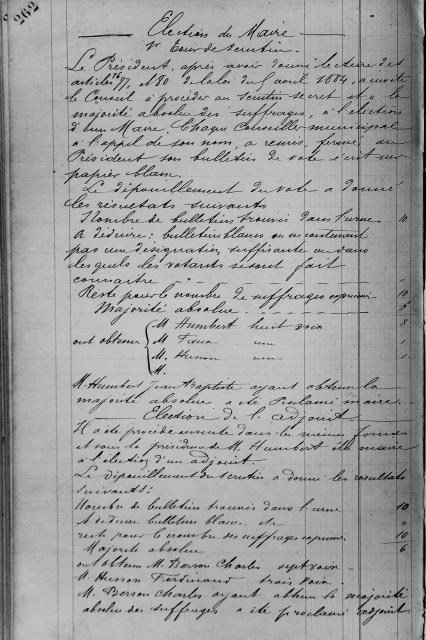 262
Election du Maire
1r Tour de scrutin.
Le Président, après avoir donné lecture des
articles 76 77, et 80 de la loi du 5 avril 1884, a invité
le Conseil à procéder au scrutin secret et à la
majorité absolue des suffrages, à l'élection
d'un Maire. Chaque Conseiller municipal
à l'appel de son nom, a remis, fermé au
Président son bulletin de vote écrit sur
papier blanc.
Le dépouillement du vote a donné
les résultats suivants
Nombre de bulletins trouvés dans l'urne 10
A déduire: bulletins blancs ou ne contenant
pas une désignation suffisante ou dans
lesquels les votants se sont fait
connaître "
Reste pour le nombre de suffrages exprimés 10
Majorité absolue 6
M Humbert huit voix 8
ont obtenu M une 1
M. Husson une 1
M.
M. Humbert Jean Baptiste ayant obtenu la
majorité absolue a été Proclamé maire.
Election de l'adjoint
Il a été procédé ensuite dans les mêmes formes
et sous la présidence de M. Humbert élu maire
à l'élection d'un adjoint.
Le Dépouillement du scrutin a donné les résultats
suivants:
Nombre de bulletins trouvés dans l'urne 10
A déduire bulletins blancs "
rest pour le nombre des suffrages exprimés 10
Majorité absolue 6
ont obtenu M. Berson Charles sept voix
M. Husson Ferdinand trois voix
M. Berson Charles ayant obtenu la majorité
absolue des suffrages a été proclamé adjoint